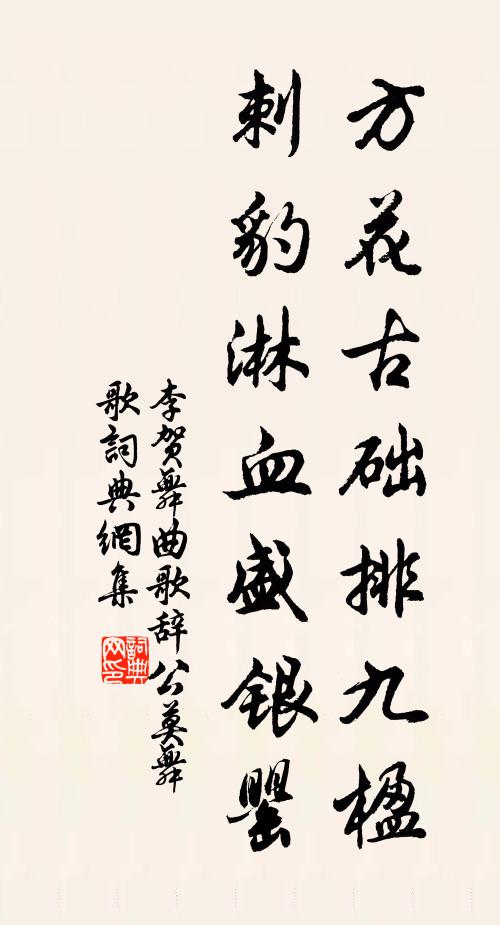 方花古础排九楹
刺豹淋血盛银罂
李贺舞曲歌辞公莫舞
歌詞典網集
詞典网印